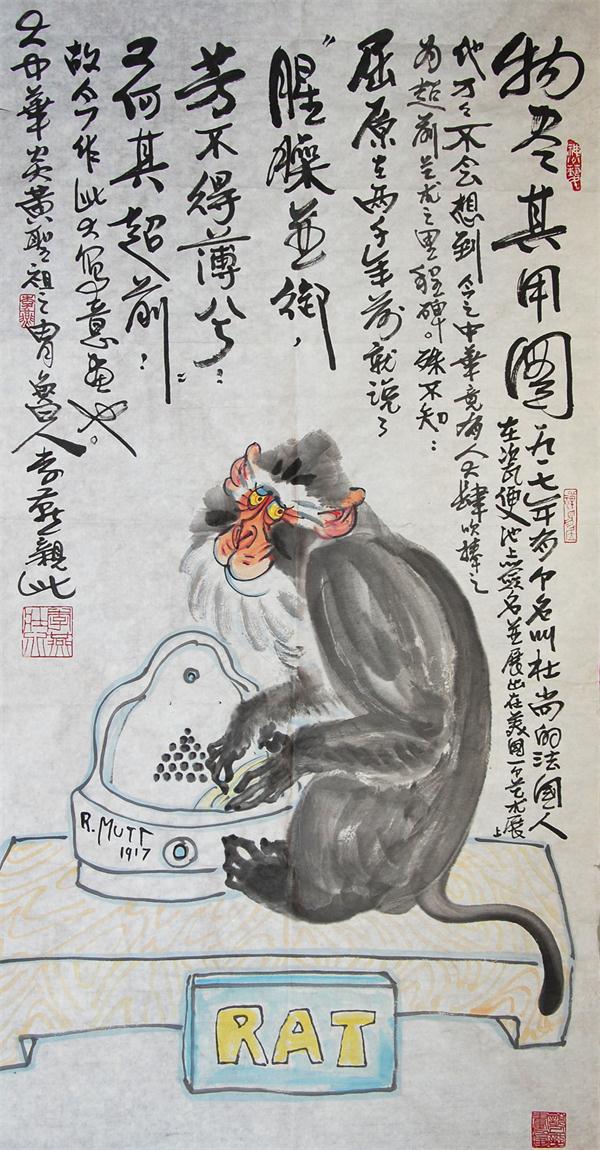 物尽其用圖
一九一七年有个名叫杜尚的法國人
在瓷便池上签名並展出在美國一个艺术展上
他万万不会想到今之中華竟有人大肆吹捧之
为超前艺术之里程碑。殊不知：
屈原在两千年前就说了
"腥臊並御，
芳不得薄兮"！
又何其超前！
故今作此大写意画也。
大中華炎黄聖祖之胄鲁人李燕親此
李燕
R. MUTT
1917
RAT